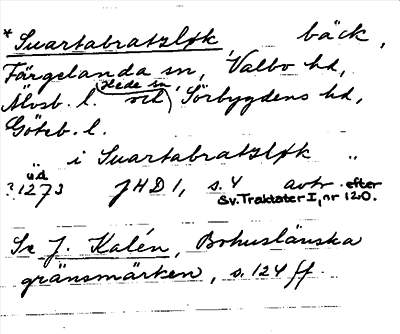 *Suartabratzløk, bäck,
Färgelanda sn, Valbo hd,
Älvsb. l. och (Hede sn), Sörbygdens hd,
Göteb. l.
i Suartabratzløk "
u.å.
?1273 JHD 1, s. 4 avtr. efter
Sv. Traktater I, nr 120.
Se J. Kalén, Bohuslänska
gränsmärken, s. 124 ff.